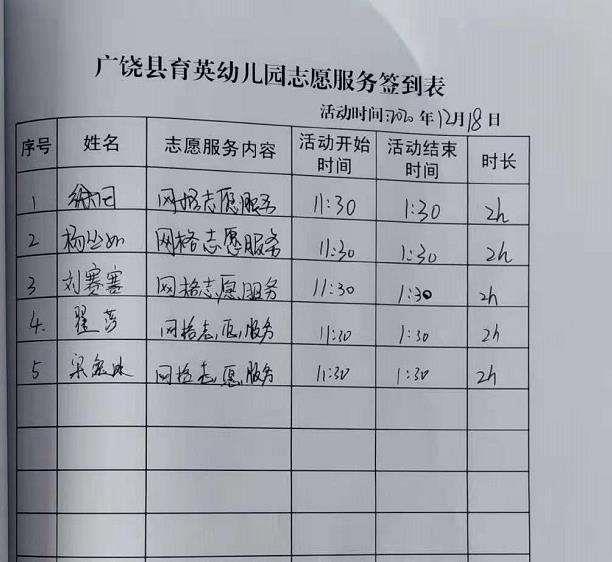 广饶县育英幼儿园志愿服务签到表
活动时间:2020年12月18日
序号 姓名 志愿服务内容 活动开始时间 活动结束时间 时长
1 网格志愿服务 11:30 1:30 2h
2 网格志愿服务 11:30 1:30 2h
3 刘赛赛 网格志愿服务 11:30 1:30 2h
4. 网格志愿服务 11:30 1:30 2h
5 网格志愿服务 11:30 1:30 2h